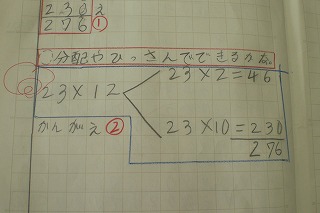 230え
276①
分配やひっさんでできるかな。
23×2=46
23×12
かんがえ②
23×10=230
276